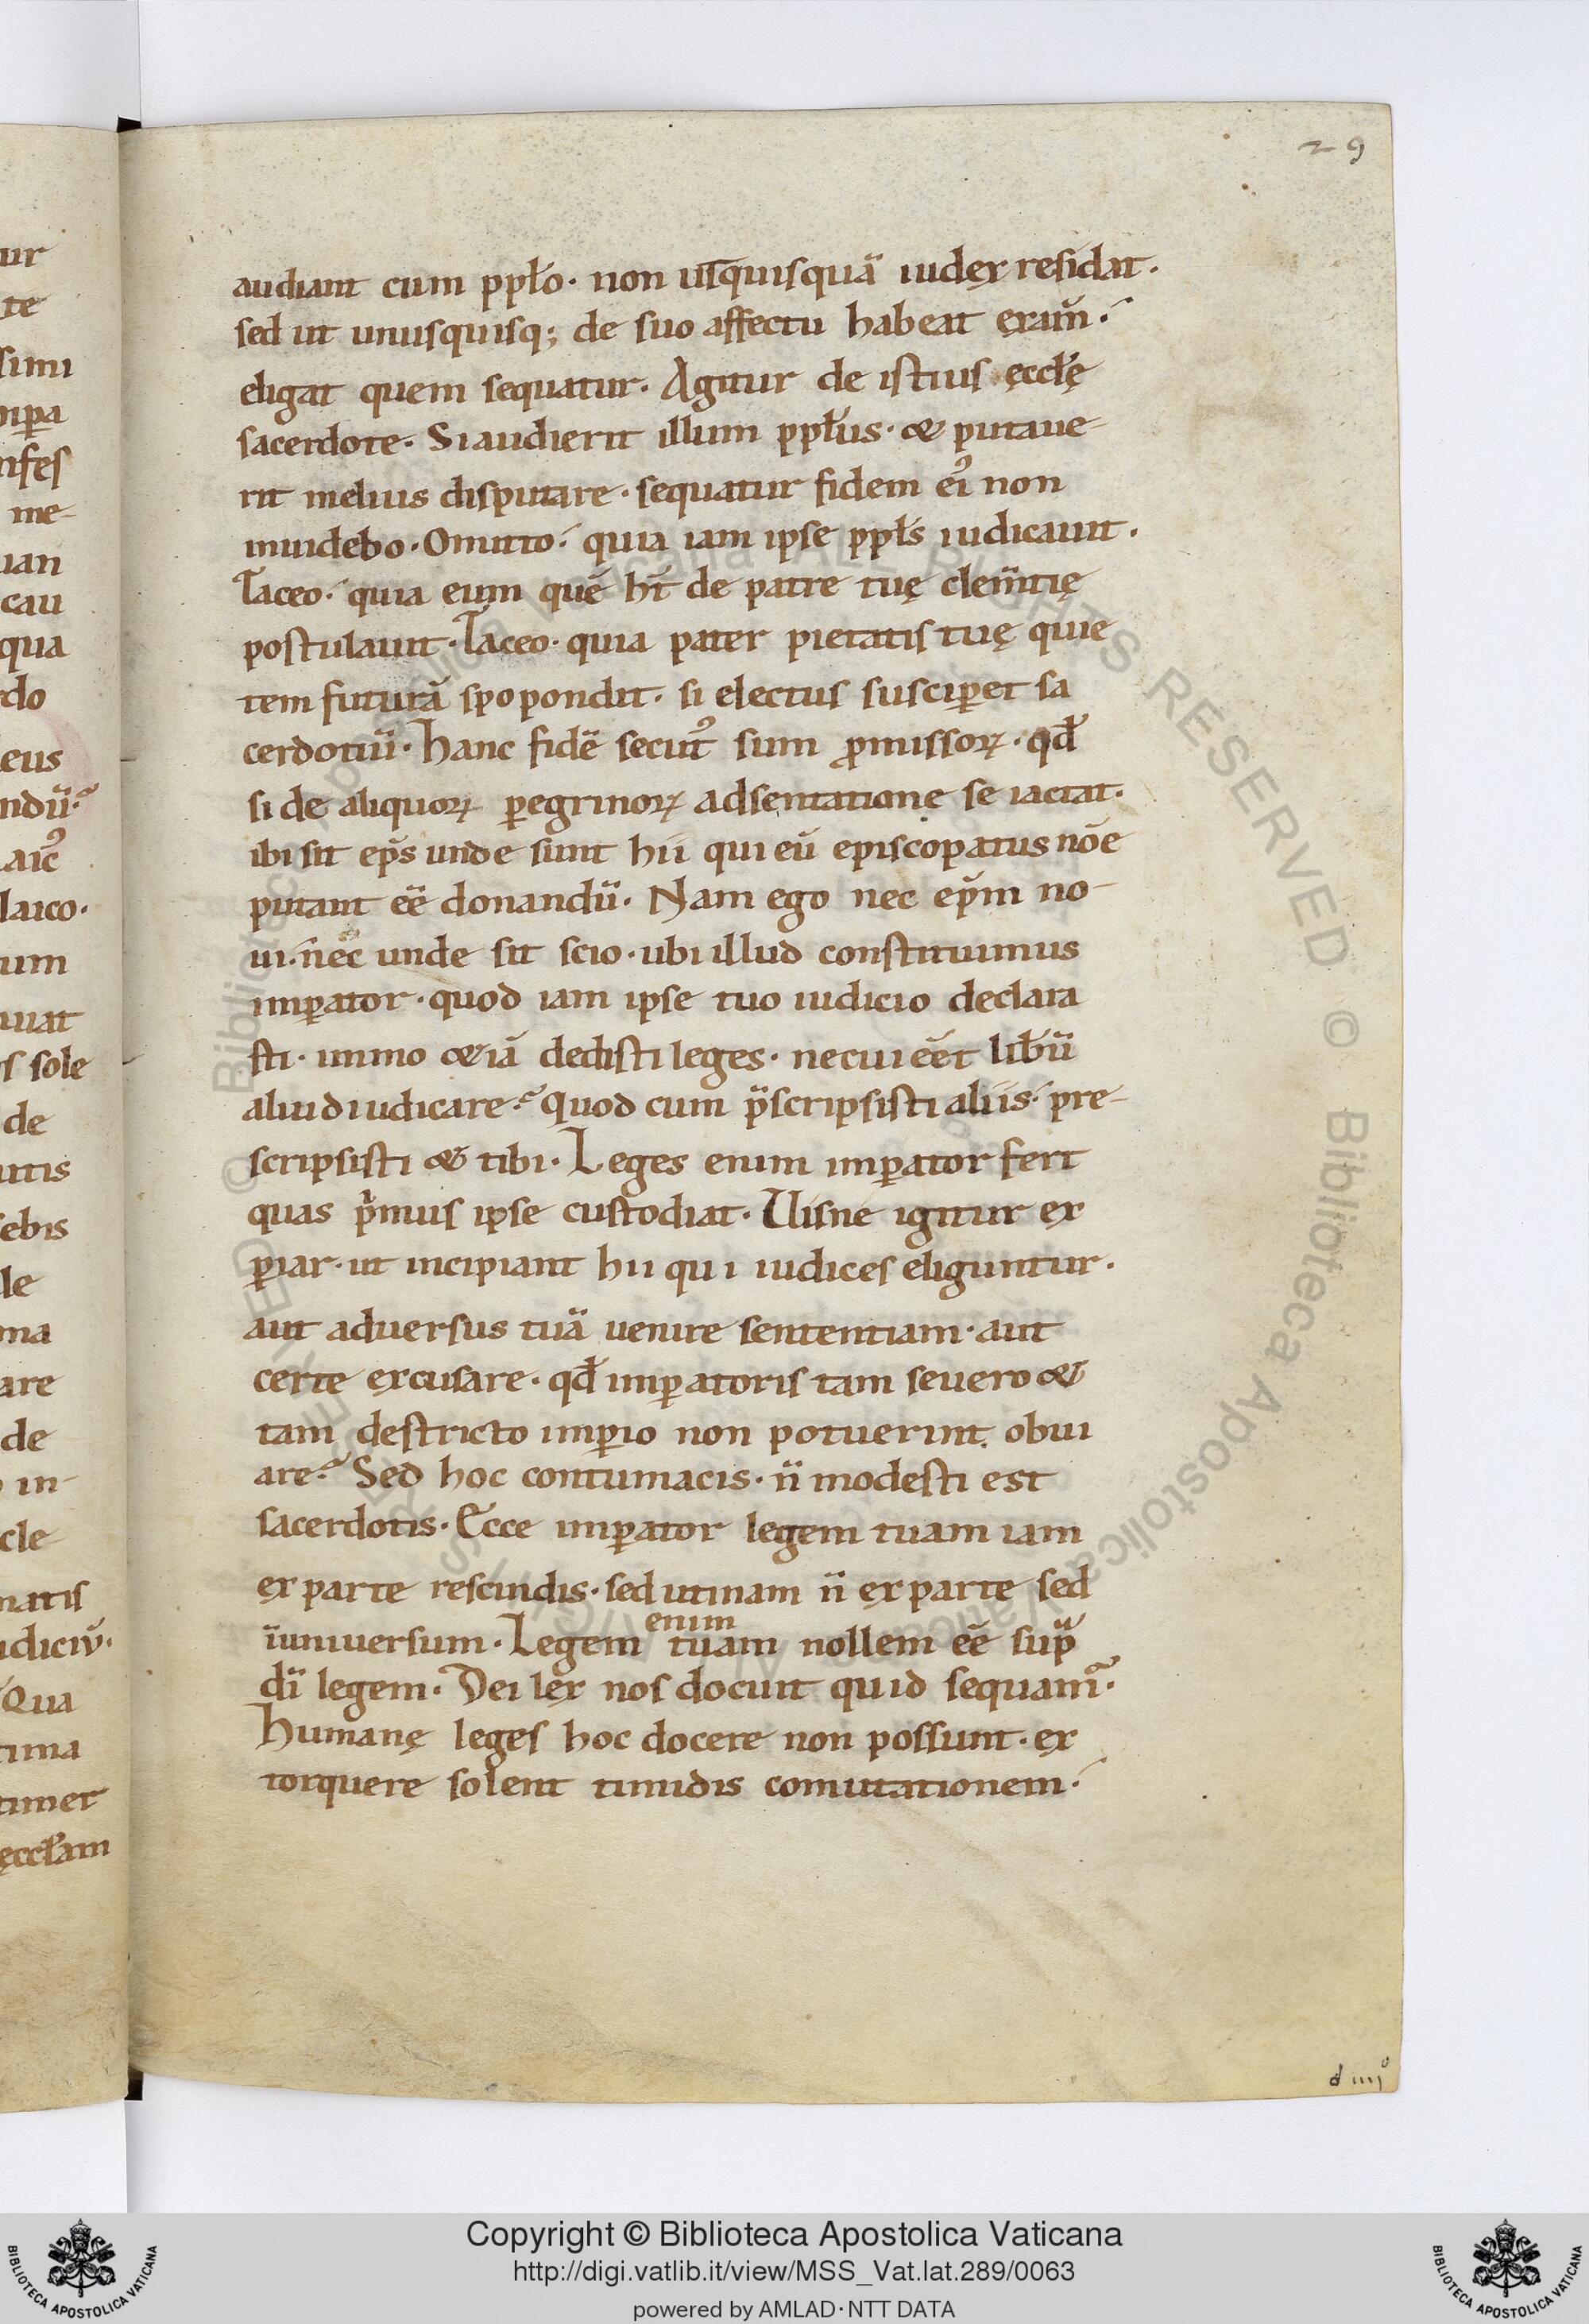 29
audiant cum pplo · non ut quisquā iudex residat ·
sed ut unusquisq; de suo affectu habeat exam̄ ·
eligat quem sequatur · Agitur de istius ęcclę
sacerdote · Si audierit illum pplus · & putaue-
rit melius disputare · sequatur fidem ei' non
inuidebo · Omitto · quia iam ipse ppls iudicauit ·
Taceo · quia eum quē ht̄ de patre tuę clem̄tię
postulauit · Taceo · quia pater pietatis tuę quie
tem futurā spopondit · si electus susciꝑet sa
cerdotiū · hanc fidē secut' sum ꝓmissoꝝ · qđ
si de aliquoꝝ ꝑegrinoꝝ adsentatione se iactat ·
ibi sit ep̄s unde sunt hii qui eū episcopatus nōe
putant eē donandū · Nam ego nec ep̄m no-
ui · nec unde sit scio · ubi illud constituimus
imꝑator · quod iam ipse tuo iudicio declara
sti · immo &iā dedisti leges · nec cui eēt libū
aliud iudicare · Quod cum p̄scripsisti aliis · pre-
scripsisti & tibi · Leges enim imꝑator fert
quas pͥmus ipse custodiat · Uisne igitur ex
ꝑiar · ut incipiant hii qui iudices eliguntur ·
aut aduersus tuā uenire sententiam · aut
certe excusare · qđ imꝑatoris tam seuero &
tam destricto imꝑio non potuerint obui
are · Sed hoc contumacis · n̄ modesti est
sacerdotis · Ecce imꝑator legem tuam iam
ex parte rescindis · sed utinam n̄ ex parte sed
īuniuersum · Legem enim tuam nollem eē sup̄
dī legem · Dei lex nos docuit quid sequam̄ ·
humanę leges hoc docere non possunt · ex
torquere solent timidis comutationem ·
d iiijº
Copyright © Biblioteca Apostolica Vaticana
http://digi.vatlib.it/view/MSS_Vat.lat.289/0063
powered by AMLAD·NTT DATA
BIBLIOTECA APOSTOLICA VATICANA
BIBLIOTECA APOSTOLICA VATICANA